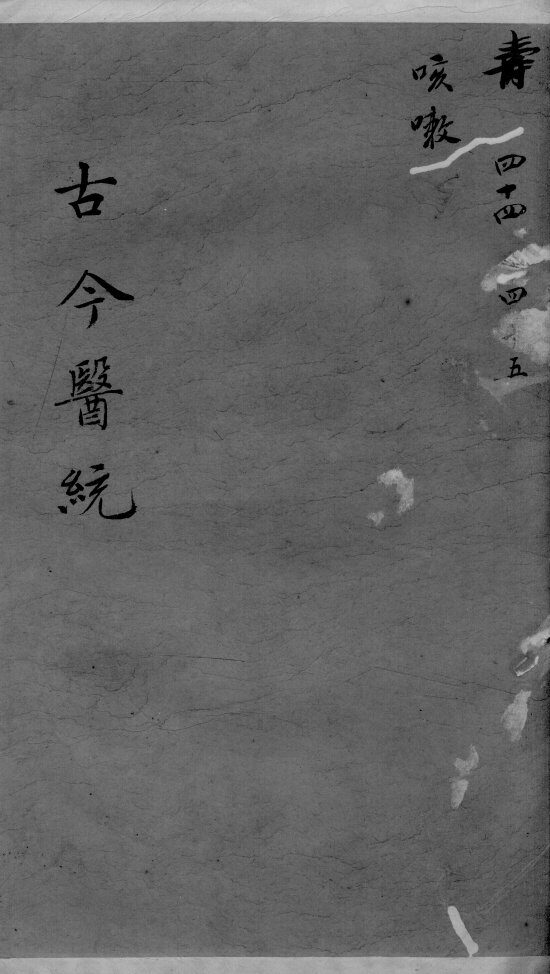 壽
四十四
四十五
咳嗽
古今醫統